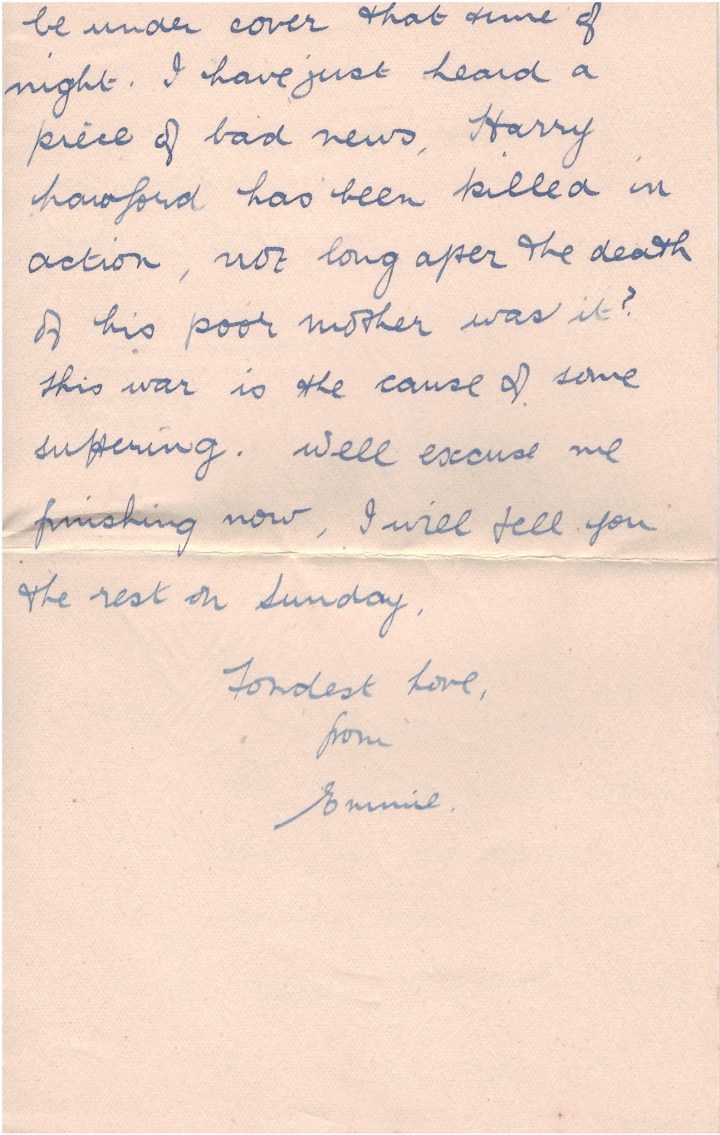 be under cover that time of
night. I have just heard a
piece of bad news, Harry
Lawford has been killed in
action, not long after the death
of his poor mother was it?
This war is the cause of some
suffering. Well excuse me
finishing now, I will tell you
the rest on Sunday,
Fondest Love,
from
Emmie.